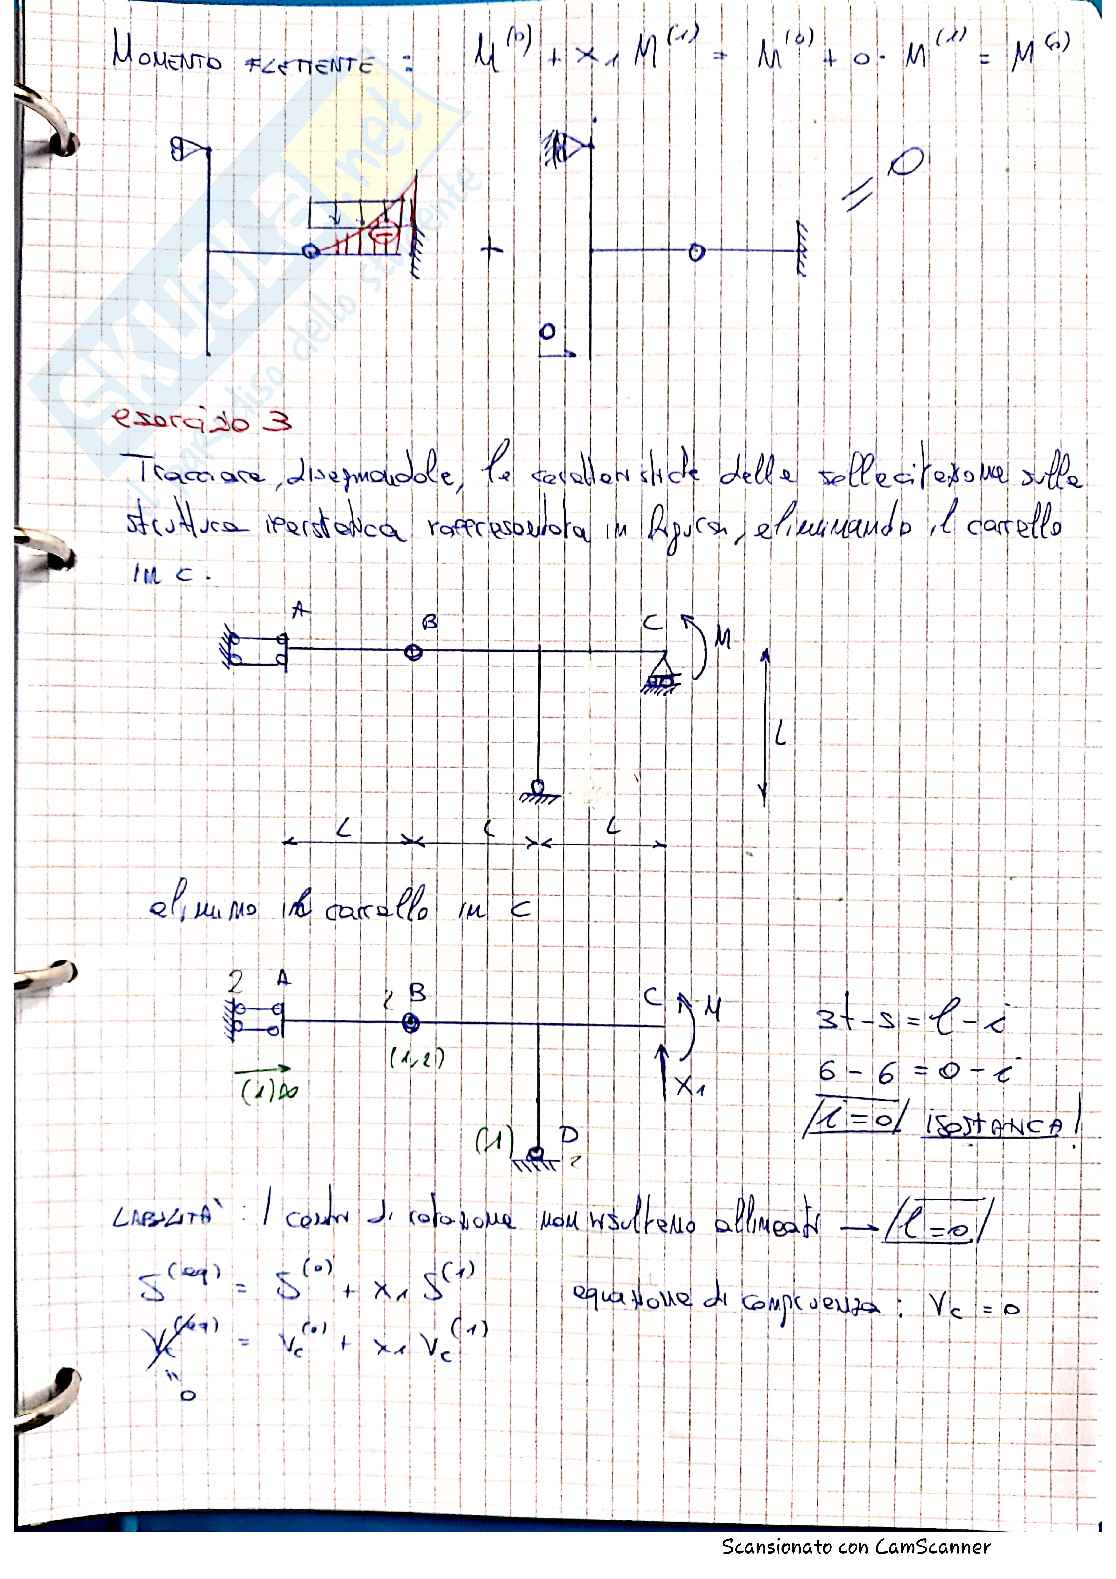 MOMENTO FLETTENTE : M⁽⁰⁾ + X₁ M⁽¹⁾ = M⁽⁰⁾ + 0 · M⁽¹⁾ = M⁽⁰⁾
= 0
+
0
esercizio 3
Tracciare, disegnandole, le caratteristiche della sollecitazione sulla
struttura iperstatica rappresentata in figura, eliminando il carrello
in C.
A B C M
L
L L L
elimino il carrello in C
2 A 2 B C M
(1,2)
(1)∞ X₁
(1) D 2
3t - s = l - i
6 - 6 = 0 - i
i = 0 ISOSTATICA!
LABILITÀ : I centri di rotazione non risultano allineati → l = 0
S⁽ᵉᑫ⁾ = S⁽⁰⁾ + X₁ S⁽¹⁾ equazione di congruenza : Vc = 0
Vc⁽ᵉᑫ⁾ = Vc⁽⁰⁾ + X₁ Vc⁽¹⁾
" 0
SKUOLA.net
dello studente
Scansionato con CamScanner